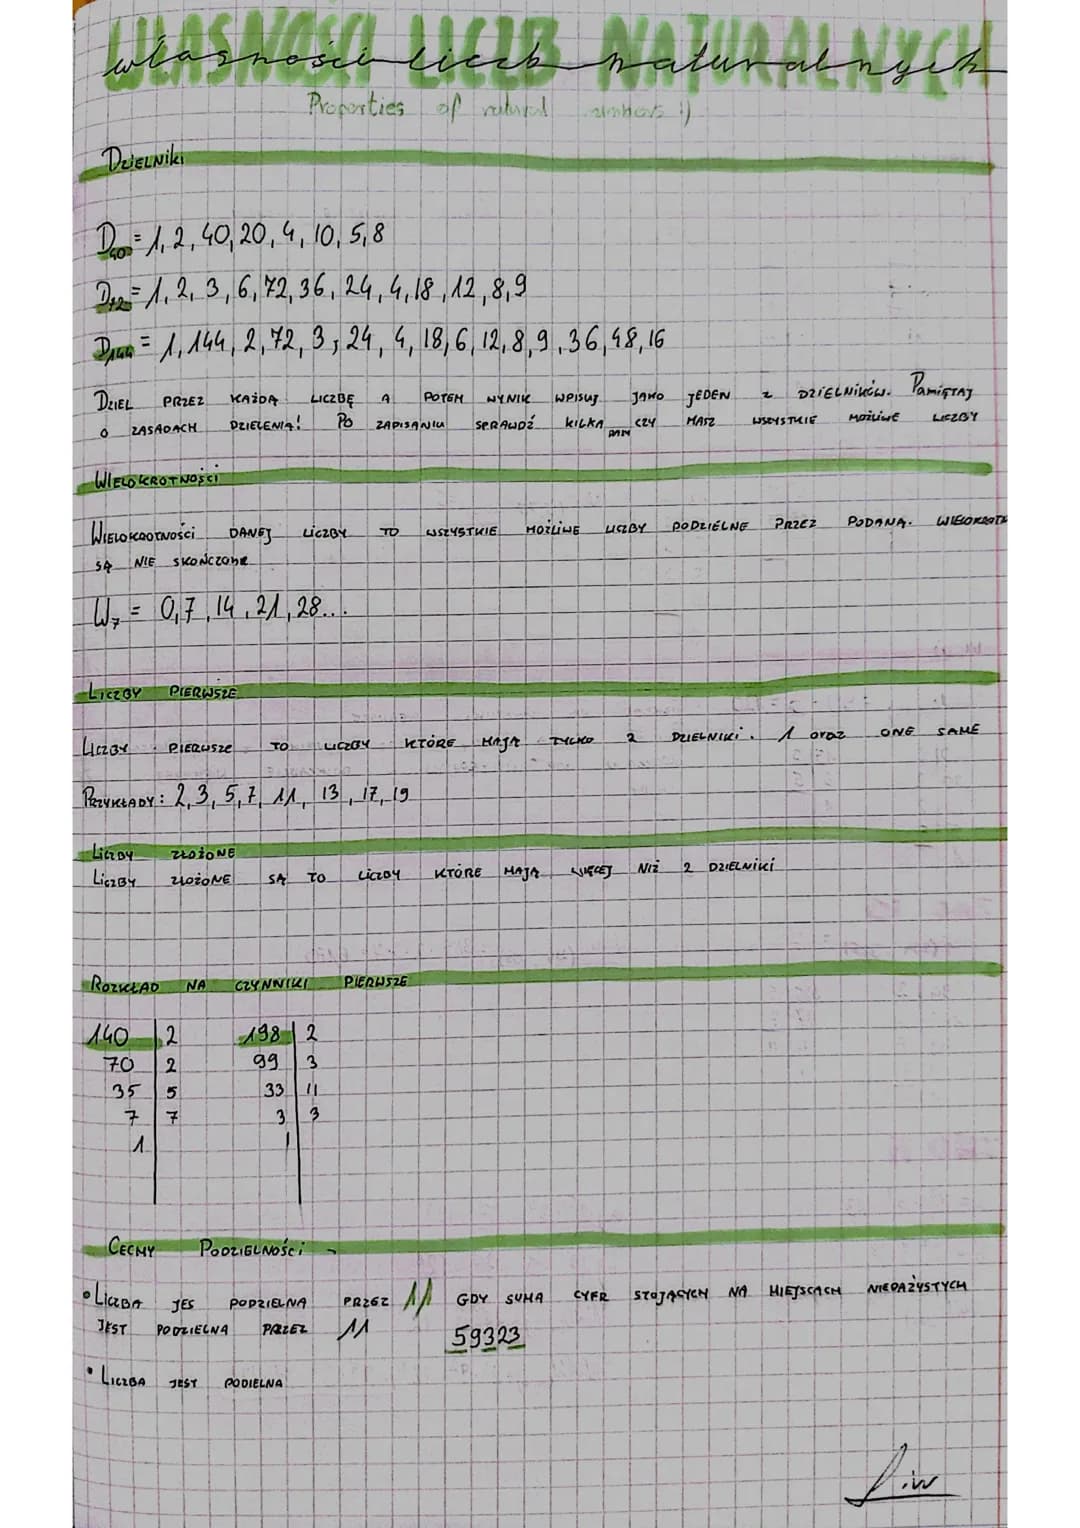 WŁASNOŚCI LICZB NATURALNYCH
własności liczb naturalnych
Properties of natural numbers :)
DZIELNIKI
D40 = 1, 2, 40, 20, 4, 10, 5, 8
D72 = 1, 2, 3, 6, 72, 36, 24, 4, 18, 12, 8, 9
D144 = 1, 144, 2, 72, 3, 24, 4, 18, 6, 12, 8, 9, 36, 48, 16
DZIEL PRZEZ KAŻDĄ LICZBĘ A POTEM WYNIK WPISUJ JAKO JEDEN Z DZIELNIKÓW. PAMIĘTAJ
O ZASADACH DZIELENIA! PO ZAPISANIU SPRAWDŹ KILKA RAZY CZY MASZ WSZYSTKIE MOŻLIWE LICZBY
WIELOKROTNOŚCI
WIELOKROTNOŚCI DANEJ LICZBY TO WSZYSTKIE MOŻLIWE LICZBY PODZIELNE PRZEZ PODANĄ.
SĄ NIE SKOŃCZONE
W7 = 0, 7, 14, 21, 28...
LICZBY PIERWSZE
LICZBY PIERWSZE TO LICZBY KTÓRE MAJĄ TYLKO 2 DZIELNIKI. 1 oraz ONE SAME
PRZYKŁADY: 2, 3, 5, 7, 11, 13, 17, 19
LICZBY ZŁOŻONE
LICZBY ZŁOŻONE SĄ TO LICZBY KTÓRE MAJĄ WIĘCEJ NIŻ 2 DZIELNIKI
ROZKŁAD NA CZYNNIKI PIERWSZE
140 | 2 198 | 2
70 | 2 99 | 3
35 | 5 33 | 11
7 | 7 3 | 3
1 | 1 |
CECHY PODZIELNOŚCI
• LICZBA JES PODZIELNA PRZEZ 11 GDY SUMA CYFR STOJĄCYCH NA MIEJSCACH NIEPAŻYSTYCH
JEST PODZIELNA PRZEZ 11 59323
• LICZBA JEST PODIELNA
Liw